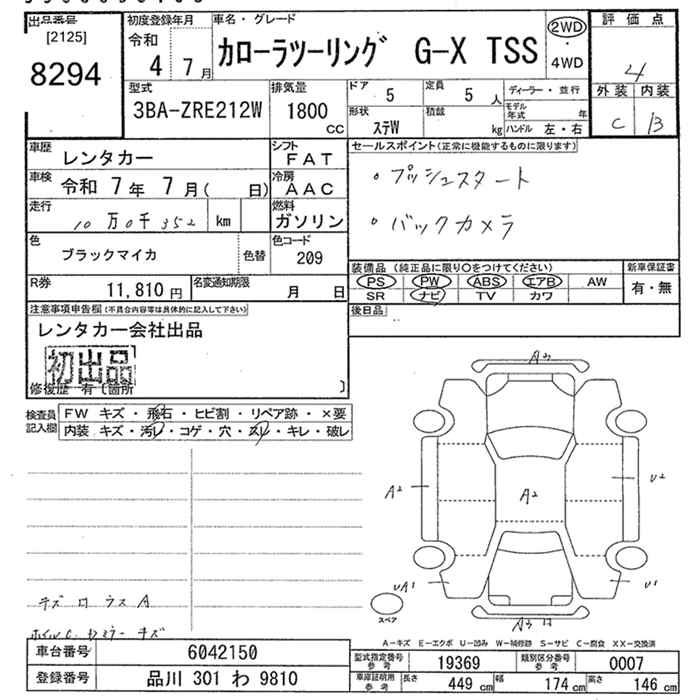 出品番号
[2125]
8294
初度登録年月
令和
4 7月
車名・グレード
カローラツーリング G-X TSS
2WD
・
4WD
評価点
4
外装 内装
C B
型式
3BA-ZRE212W
排気量
1800
cc
ドア
5
定員
5 人
形状
ステW
積載
kg
ディーラー・並行
モデル年式 年
ハンドル 左・右
車歴
レンタカー
シフト
FAT
車検
令和 7年 7月( 日)
冷房
AAC
走行
10万0千352 km
燃料
ガソリン
色
ブラックマイカ
色替
色コード
209
R券
11,810 円
名変通知期限
月 日
セールスポイント(正常に機能するものに限ります)
・プッシュスタート
・バックカメラ
装備品 (純正品に限り○をつけてください)
PS PW ABS エアB AW
SR ナビ TV カワ
新車保証書
有・無
後日品
注意事項申告欄(不具合内容等は具体的に記入して下さい)
レンタカー会社出品
初出品
修復歴 有〔箇所 〕
検査員記入欄
FW キズ・飛石・ヒビ割・リペア跡・×要
内装 キズ・汚レ・コゲ・穴・スレ・キレ・破レ
A3
A2
A2
U2
UA1
U1
スペア
A3
A-キズ E-エクボ U-凹み W-補修跡 S-サビ C-腐食 XX-交換済
車台番号
6042150
登録番号
品川 301 わ 9810
型式指定番号
参考
19369
類別区分番号
参考
0007
車庫証明用
参考
長さ 449 cm 幅 174 cm 高さ 146 cm